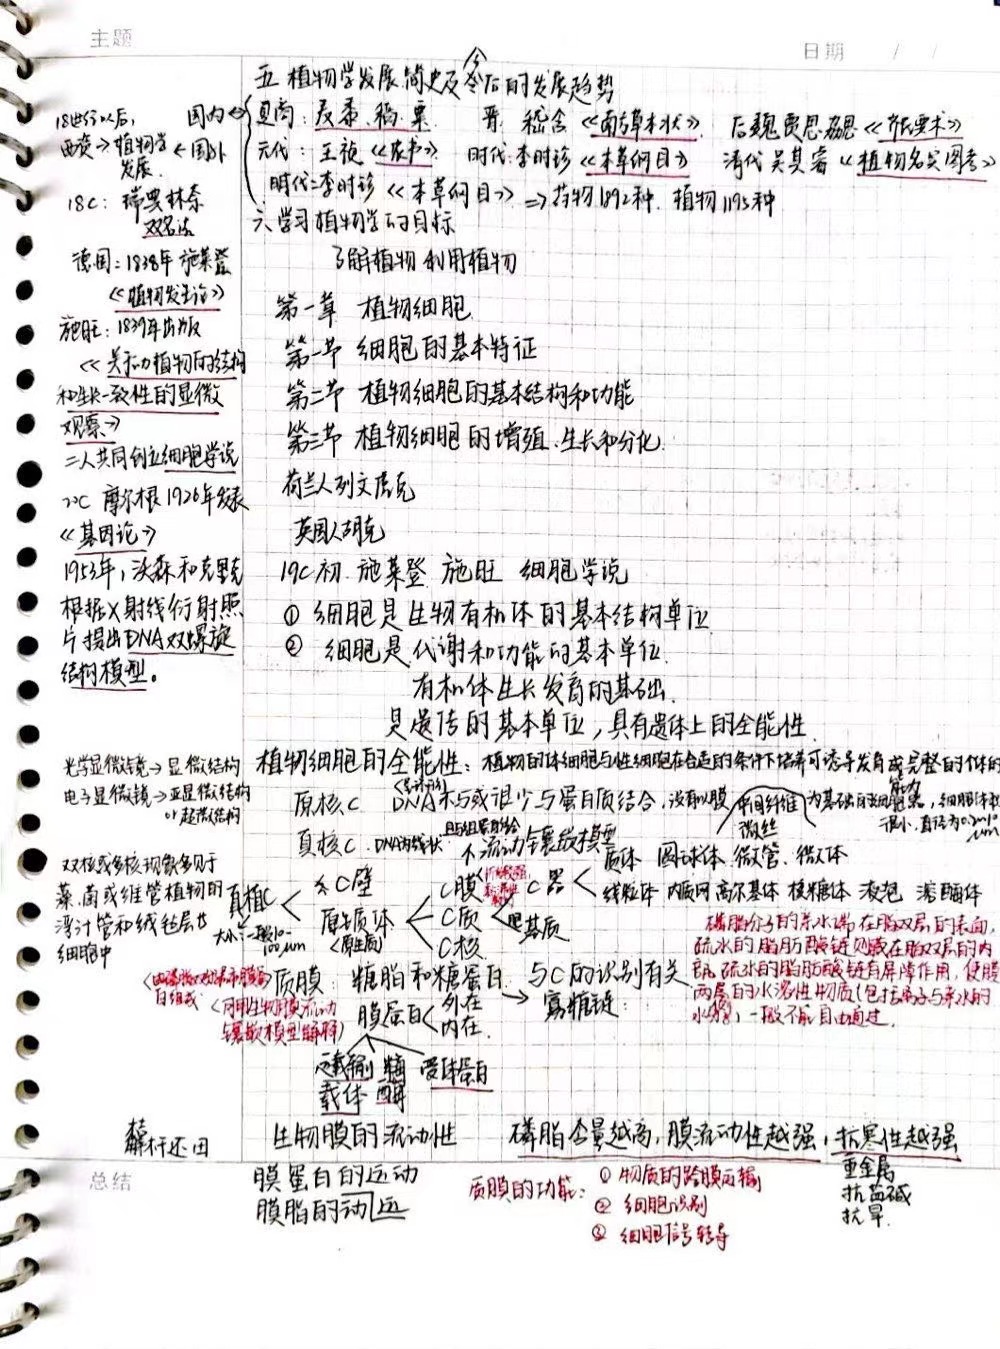 主题
日期 / /
五 植物学发展简史及今后的发展趋势
18世纪以后,
西宾→植物学
发展.
国内
国外
夏商: 麦黍、稻、粟 晋: 嵇含《南方草木状》 后魏贾思勰《齐民要术》
元代: 王祯《农书》 明代:李时珍《本草纲目》 清代 吴其濬《植物名实图考》
明代:李时珍《本草纲目》⇒药物1892种. 植物1195种
18C: 瑞典林奈
双名法
六 学习植物学的目标
了解植物 利用植物
德国: 1838年 施莱登
《植物发生论》
施旺: 1839年出版
《关于动植物的结构
和生长一致性的显微
观察》
二人共同创立细胞学说
20C 摩尔根1926年发表
《基因论》
1953年, 沃森和克里克
根据X射线衍射照
片提出DNA双螺旋
结构模型。
第一章 植物细胞
第一节 细胞的基本特征
第二节 植物细胞的基本结构和功能
第三节 植物细胞的增殖、生长和分化.
荷兰人列文虎克
英国人胡克
19C初. 施莱登 施旺 细胞学说
① 细胞是生物有机体的基本结构单位
② 细胞是代谢和功能的基本单位.
有机体生长发育的基础.
是遗传的基本单位, 具有遗传上的全能性.
光学显微镜→显微结构
电子显微镜→亚显微结构
or超微结构
植物细胞的全能性: 植物的体细胞与性细胞在合适的条件下培养可诱导发育成完整的个体的
能力
原核C DNA不与或很少与蛋白质结合, 没有以膜为基础的细胞器, 细胞体积
很小, 直径为0.2~10μm
真核C. DNA为线状. 且与组蛋白结合
流动镶嵌模型
中间纤维
微丝
双核或多核现象多见于
藻、菌或维管植物的
浮汁管和绒毡层
细胞中
真核C
大小:一般10~
100μm
C壁
原生质体
<原生质>
C膜
C质
C核
C器
基质
质体 圆球体. 微管、微体
线粒体 内质网 高尔基体 核糖体 液泡 溶酶体
磷脂分子的亲水端在脂双层的表面,
疏水的脂肪酸链则藏在脂双层的内
部. 疏水的脂肪酸链有屏障作用, 使膜
两层的水溶性物质(包括离子与亲水的
小分子), 一般不能自由通过.
质膜: 糖脂和糖蛋白. 与C的识别有关
寡糖链:
白组成
<可用生物膜流动
镶嵌模型解释>
膜蛋白<外在
内在.
载体 酶 受体蛋白
秸秆还田
生物膜的流动性
磷脂含量越高, 膜流动性越强, 抗寒性越强
重金属
抗盐碱
抗旱.
总结
膜蛋白的运动
膜脂的动运
质膜的功能: ① 物质的跨膜运输
② 细胞识别
③ 细胞信号转导